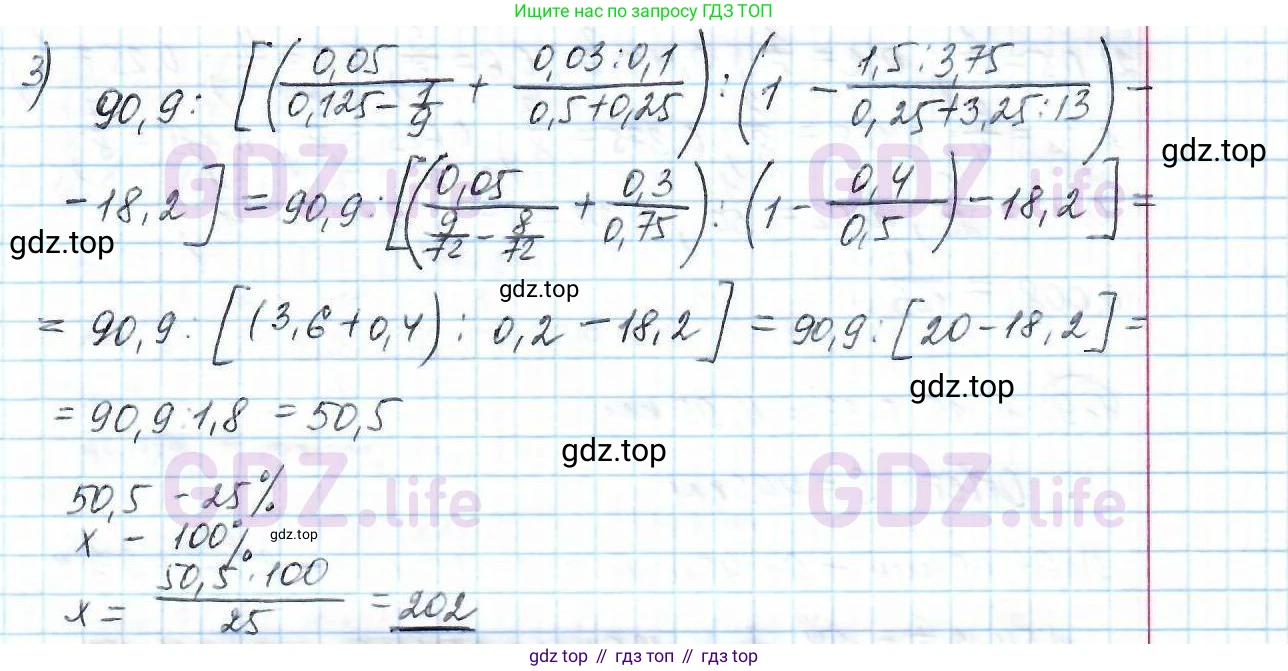 Ищите нас по запросу ГДЗ ТОП
3) 90,9 : [(0,05/(0,125 - 1/9) + (0,03 : 0,1)/(0,5 + 0,25)) : (1 - (1,5 : 3,75)/(0,25 + 3,25 : 13)) -
gdz.top
GDZ.life GDZ.life
- 18,2] = 90,9 : [(0,05/(9/72 - 8/72) + 0,3/0,75) : (1 - 0,4/0,5) - 18,2] =
gdz.top
gdz.top
= 90,9 : [(3,6 + 0,4) : 0,2 - 18,2] = 90,9 : [20 - 18,2] =
gdz.top
= 90,9 : 1,8 = 50,5
gdz.top
GDZ.life GDZ.life
50,5 - 25%
x - 100%
gdz.top
x = (50,5 · 100)/25 = 202
gdz.top // гдз топ // gdz top